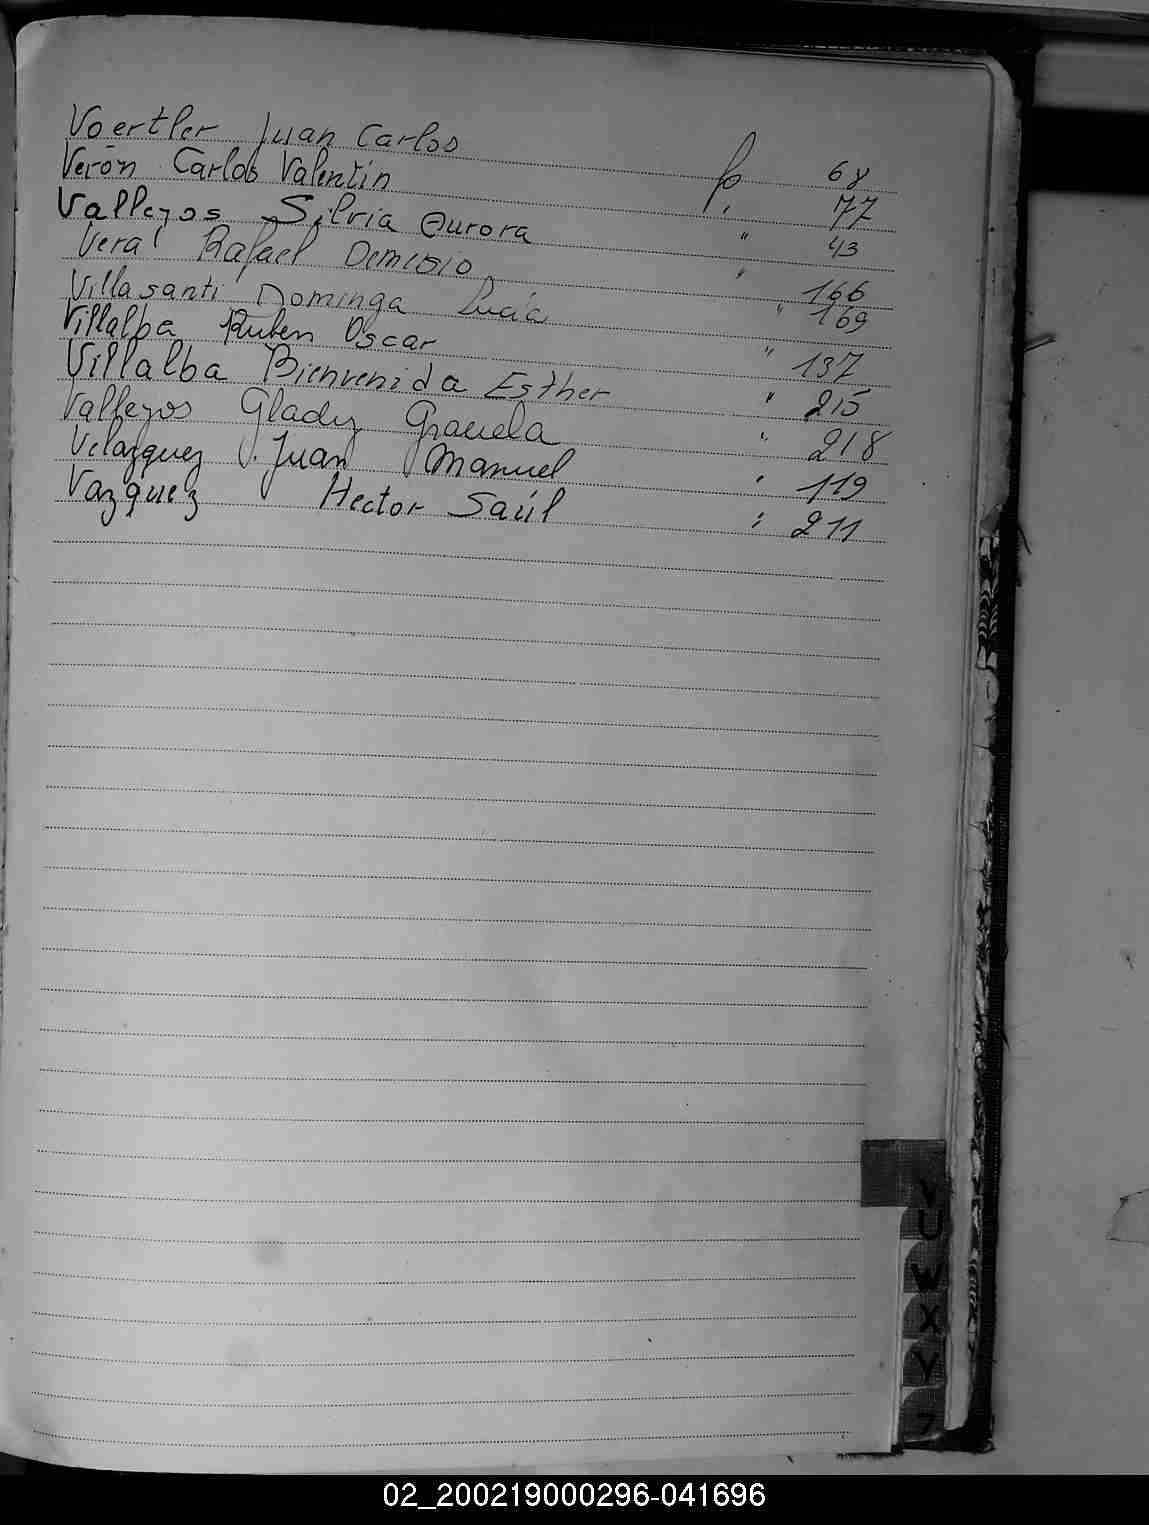 Voertler Juan Carlos fo 68
Verón Carlos Valentín " 77
Vallejos Silvia Aurora " 43
Vera Rafael Demesio " 166
Villasanti Dominga Lucía " 169
Villalba Ruben Oscar " 137
Villalba Bienvenida Esther " 215
Vallejos Glady Graciela " 218
Velazquez Juan Manuel " 119
Vazquez Hector Saúl " 211
V
U
W
X
Y
Z
02_200219000296-041696